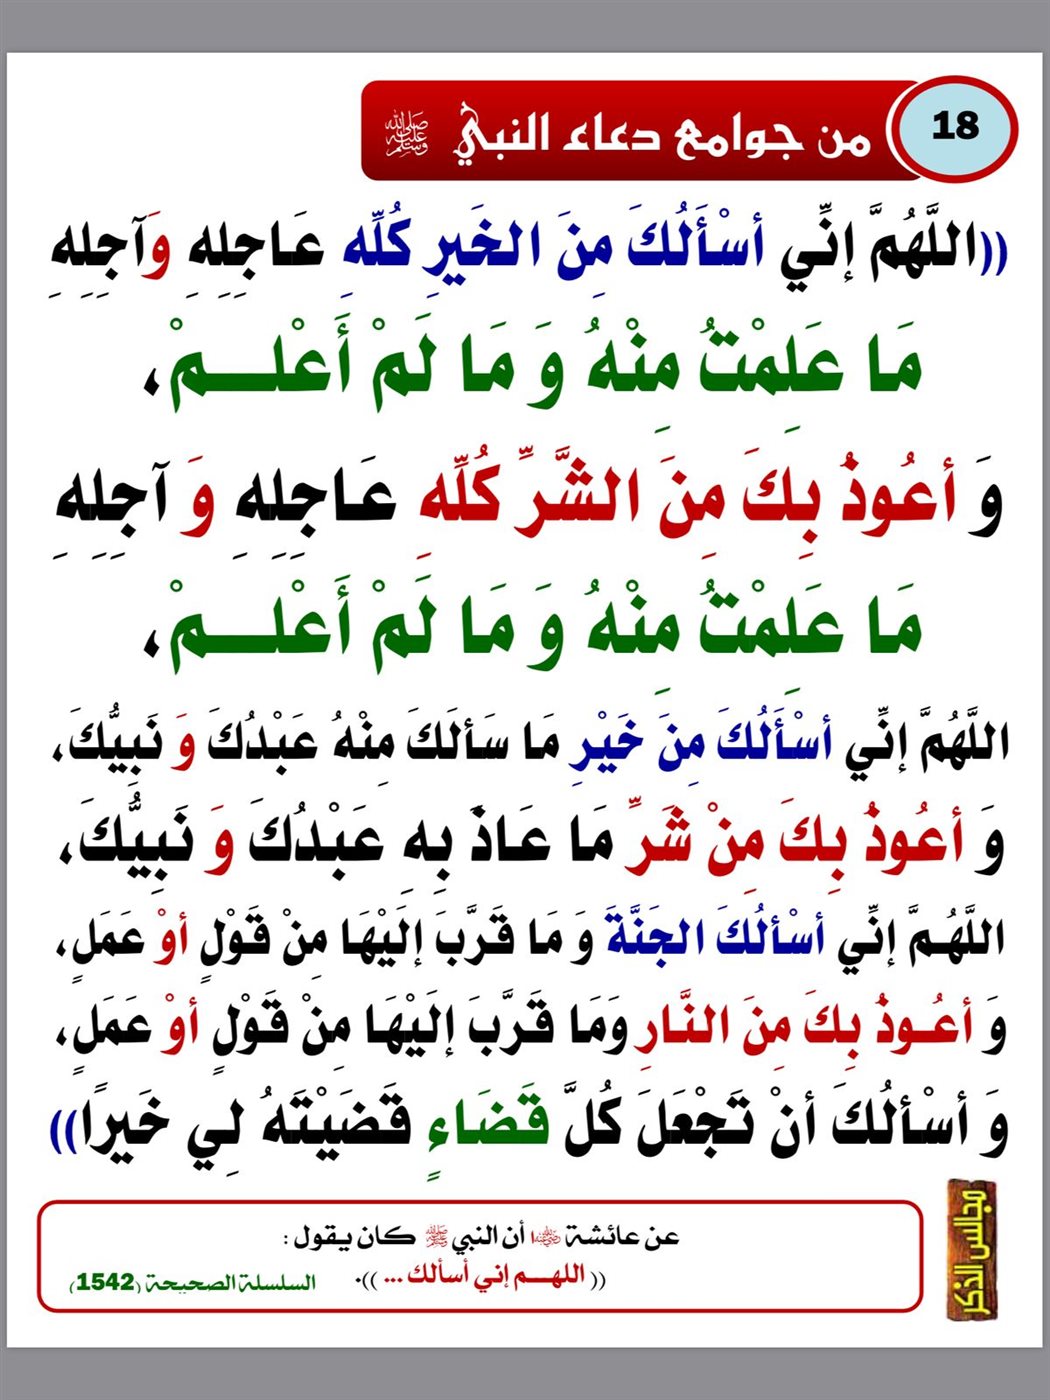 18
من جوامع دعاء النبي ﷺ
((اللَّهُمَّ إنِّي أسْأَلُكَ مِنَ الخَيرِ كُلِّهِ عَـاجِلِهِ وَآجِلِهِ
مَا عَلِمْتُ مِنْهُ وَ مَا لَمْ أَعْلــمْ،
وَ أعُوذُ بِكَ مِنَ الشَّرِّ كُلِّهِ عَـاجِلِهِ وَ آجِلِهِ
مَا عَلِمْتُ مِنْهُ وَ مَا لَمْ أَعْلــمْ،
اللَّهُمَّ إنِّي أسْأَلُكَ مِنَ خَيْرِ مَا سَألَكَ مِنْهُ عَبْدُكَ وَ نَبِيُّكَ،
وَ أعُوذُ بِكَ مِنْ شَرِّ مَا عَاذَ بِهِ عَبْدُكَ وَ نَبِيُّكَ،
اللَّهُـمَّ إنِّي أسْألُكَ الجَنَّةَ وَ مَا قَرَّبَ إلَيْهَا مِنْ قَوْلٍ أوْ عَمَلٍ،
وَ أعُـوذُ بِكَ مِنَ النَّارِ وَمَا قَرَّبَ إلَيْهَا مِنْ قَوْلٍ أوْ عَمَلٍ،
وَ أسْألُكَ أنْ تَجْعَلَ كُلَّ قَضَاءٍ قَضَيْتَهُ لِي خَيرًا))
مجالس الذكر
عن عائشة رضي الله عنها أن النبي ﷺ كان يقول :
(( اللهــم إني أسألك ... )).
السلسلة الصحيحة (1542)